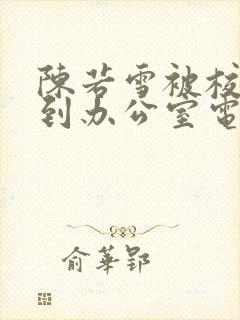 陳若雪被校
到办公室電
俞華郢